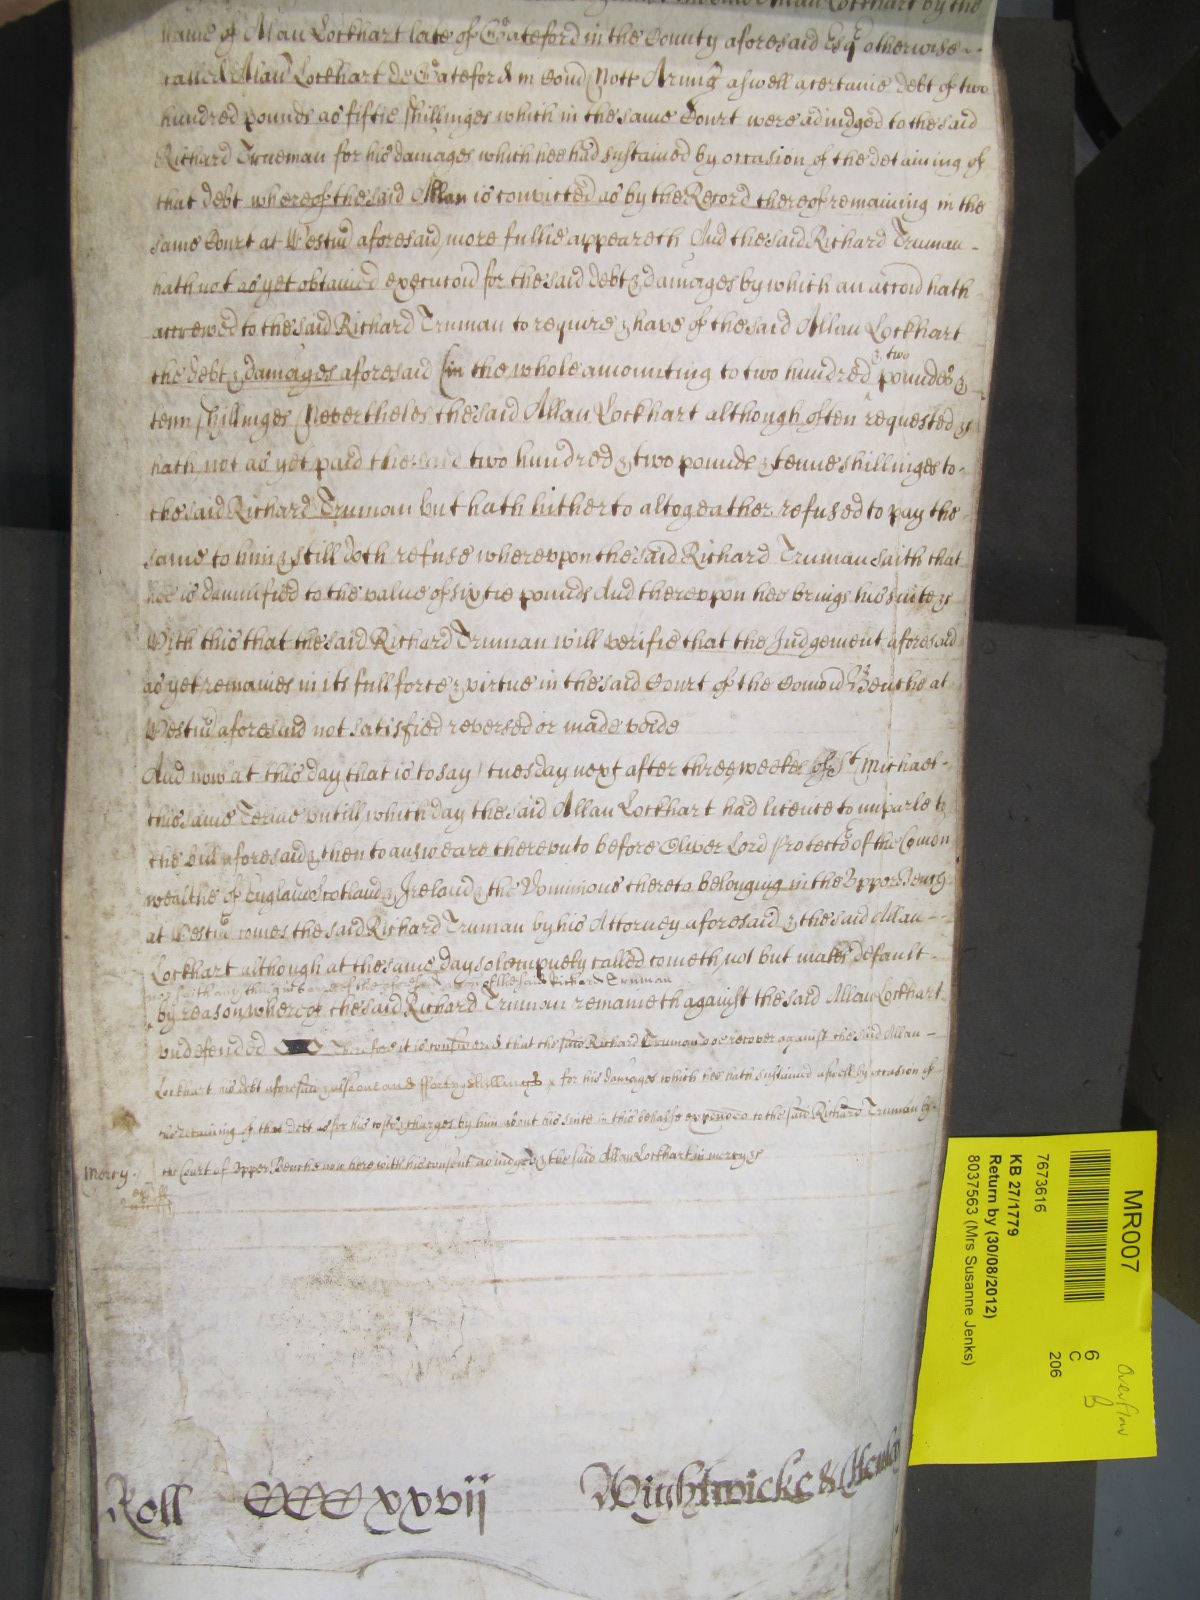 Allan Lockhart by the
name of Alan Lockhart late of Gateford in the County aforesaid Esqr otherwise
called Alan Lockhart de Gateford in Com Nott Armig aswell a certaine debt of two
hundred pounds as fiftie shillinges which in the same Court were adiudged to the said
Richard Trueman for his damages which hee had sustained by occasion of the detaining of
that debt whereof the said Allan is convicted as by the Record thereof remaining in the
same Court at Westm aforesaid more fullie appeareth And the said Richard Truman
hath not as yet obtained execucon for the said debt & damages by which an accon hath
accrewed to the said Richard Truman to require & have of the said Allan Lockhart
the debt & damages aforesaid in the whole amounting to two hundred & two poundes &
tenn shillinges Nevertheles the said Allan Lockhart although often requested &c
hath not as yet paid the said two hundred & two pounds & tenne shillinges to
the said Richard Truman but hath hitherto altogeather refused to pay the
same to him & still doth refuse wherevpon the said Richard Truman saith that
hee is damnified to the value of sixtie pounds And therevpon hee brings his suite &c
With this that the said Richard Truman will verifie that the Judgement aforesaid
as yet remaines in its full force & virtue in the said Court of the Comon Benche at
Westm aforesaid not satisfied reversed or made voide
And now at this day that is to say tuesday next after three weekes of St Michael
this same Terme vntill which day the said Allan Lockhart had licence to imparle to
the bill aforesaid & then to answeare therevnto before Oliver Lord Protector of the Comon
wealthe of England Scotland & Ireland & the Dominions thereto belonging in the Vpper Bench
at Westm comes the said Richard Truman by his Attorney aforesaid & the said Allan
Lockhart although at the same day solempnely called cometh not but makes default
nor saith any thing in barre of the aforesaid accon of the said Richard Truman
by reason whereof the said Richard Truman remaineth against the said Allan Lockhart
vndefended Therefore it is considered that the said Richard Truman doe recover against the said Allan
Lockhart his debt aforesaid & alsoe and ffortyshillinges for his damages which hee hath sustained aswell by occasion of
the detaining of that debt as for his costs & charges by him about his suite in this behalfe expended to the said Richard Truman by
Mercy the Court of Vpper Benche now here with his consent adiudged & the said Allan Lockhart in mercy &c
Roll CCCxxvij Wightwicke &
MR007
6
C
206
Overflow
B
7673616
KB 27/1779
Return by (30/08/2012)
8037563 (Mrs Susanne Jenks)